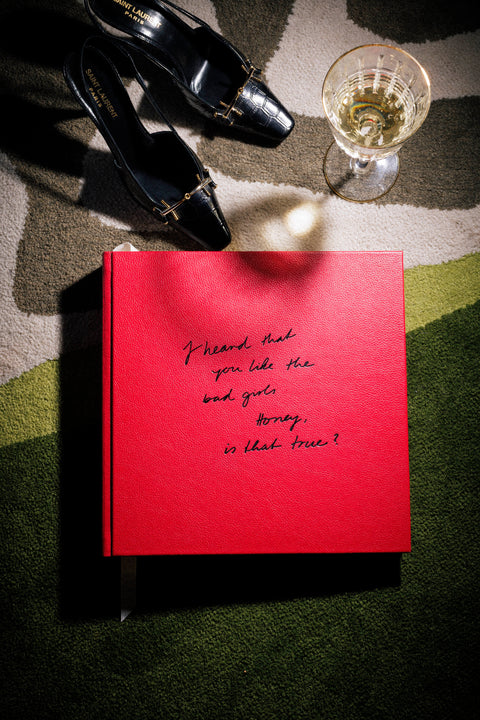 SAINT LAURENT
PARIS
SAINT LAURENT
PARIS
I heard that
you like the
bad girls
Honey,
is that true?